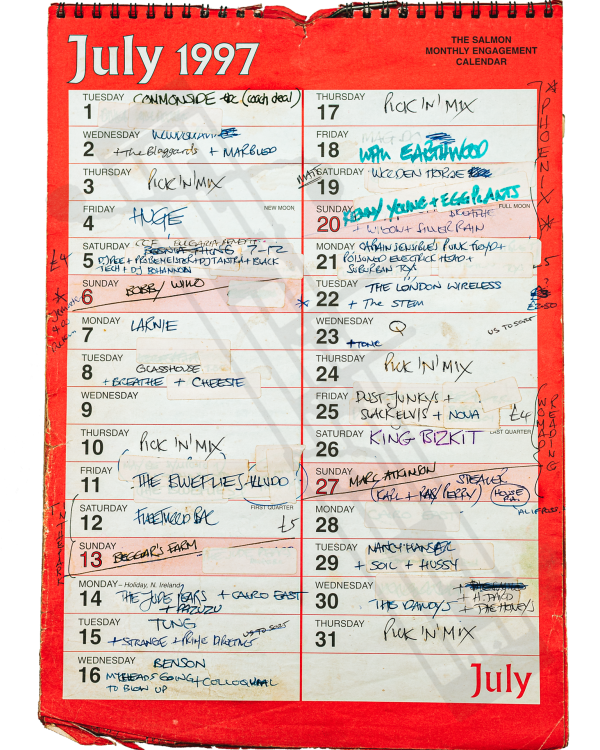 July 1997
THE SALMON
MONTHLY ENGAGEMENT
CALENDAR
TUESDAY
1
COMMONSIDE (coach deal)
WEDNESDAY
2
+ The Blaggards + MARBLED
THURSDAY
3
PICK 'N' MIX
FRIDAY
4
HUGE
NEW MOON
SATURDAY
5
7-12
DJ TANTRA + BLACK
TECH + DJ BOHANNON
£4
SUNDAY
6
BOBBY WHO
MONDAY
7
LARNIE
TUESDAY
8
GLASSHOUSE
+ BREATHE + CHEESIE
WEDNESDAY
9
THURSDAY
10
PICK 'N' MIX
FRIDAY
11
THE EWEFLIES
SATURDAY
12
FLEETWOOD BAC
FIRST QUARTER
£5
SUNDAY
13
BEGGAR'S FARM
MONDAY – Holiday, N. Ireland
14
THE JUDE YEARS + CAIRO EAST
+ PAZUZU
TUESDAY
15
TUNG
+ STRANGE + PRIME DIRECTIVE
US TO SORT
WEDNESDAY
16
BENSON
MY HEADS GOING + COLLOQUIAL
TO BLOW UP
THURSDAY
17
PICK 'N' MIX
FRIDAY
18
WPM EARTHWOOD
SATURDAY
19
WOODEN HORSE
SUNDAY
20
KENNY YOUNG + EGGPLANTS
FULL MOON
+ WIDOW + SILVER RAIN
PHOENIX
MONDAY
21
CAPTAIN SENSIBLES PUNK FLOYD +
POISONED ELECTRIC HEAD +
SUBURBAN TOX
£5
TUESDAY
22
THE LONDON WIRELESS
+ THE STEM
£2.50
WEDNESDAY
23
Q
+ TONIC
US TO SORT
THURSDAY
24
PICK 'N' MIX
FRIDAY
25
DUST JUNKYS +
SLACK ELVIS + NOVA
£4
SATURDAY
26
KING BIZKIT
LAST QUARTER
WOMAD
READING
SUNDAY
27
MARC ATKINSON
STEALER
(KARL + RAY PERRY)
HOUSE
MONDAY
28
TUESDAY
29
NANCY HANSER
+ SOIL + HUSSY
WEDNESDAY
30
THE DANDYS
+ THE HONEYS
THURSDAY
31
PICK 'N' MIX
July